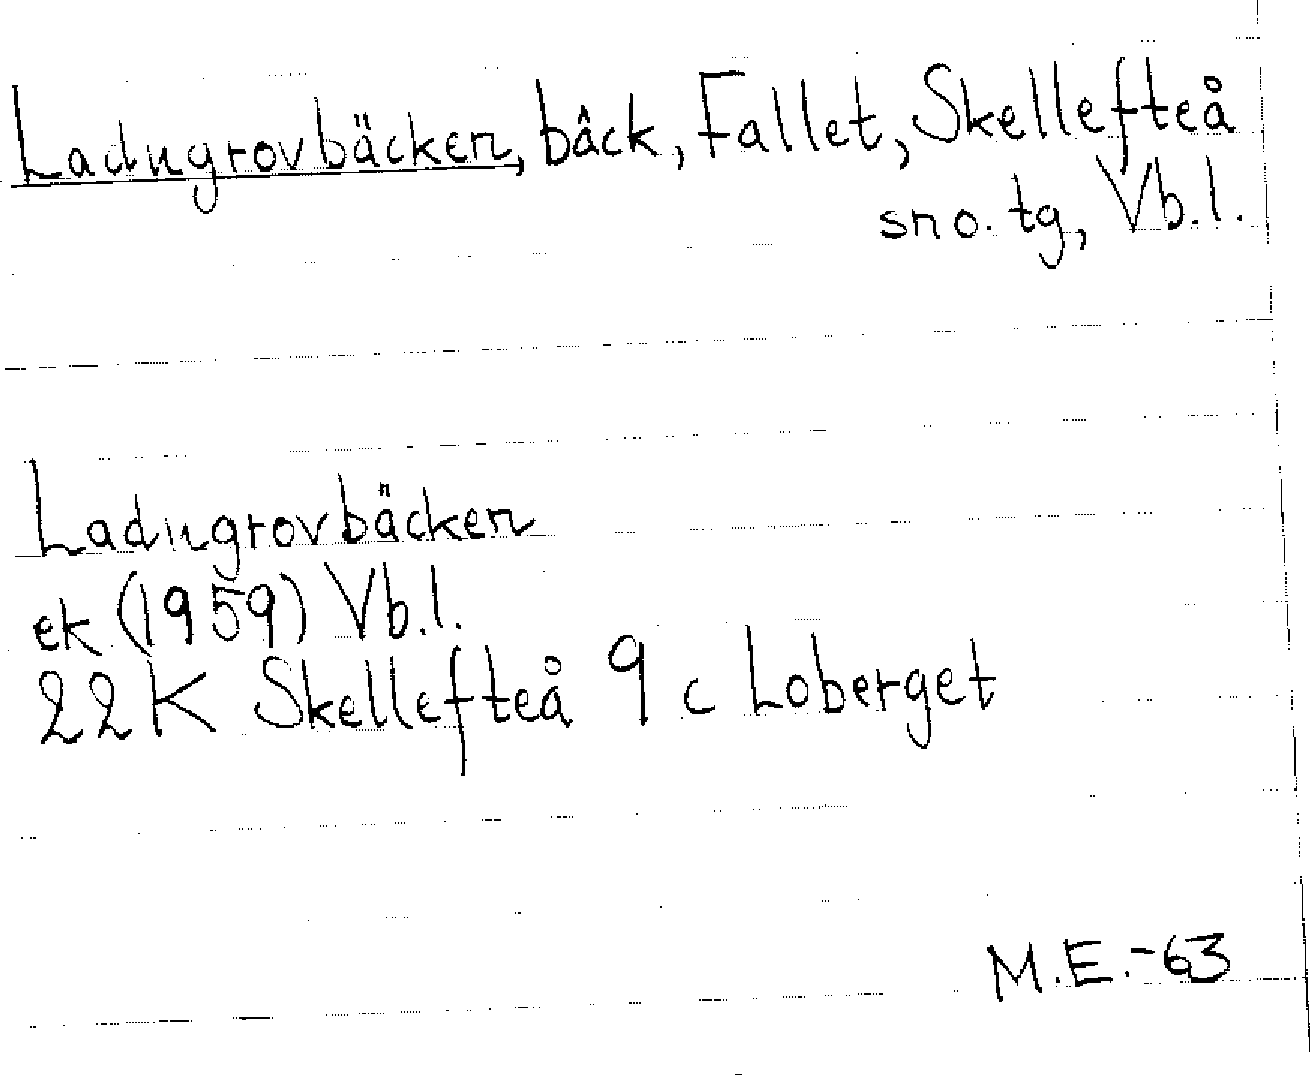 Ladugrovbäcken, bäck, Fallet, Skellefteå
sn o. tg, Vb.l.
Ladugrovbäcken
ek (1959) Vb.l.
22K Skellefteå 9 c Loberget
M.E.-63